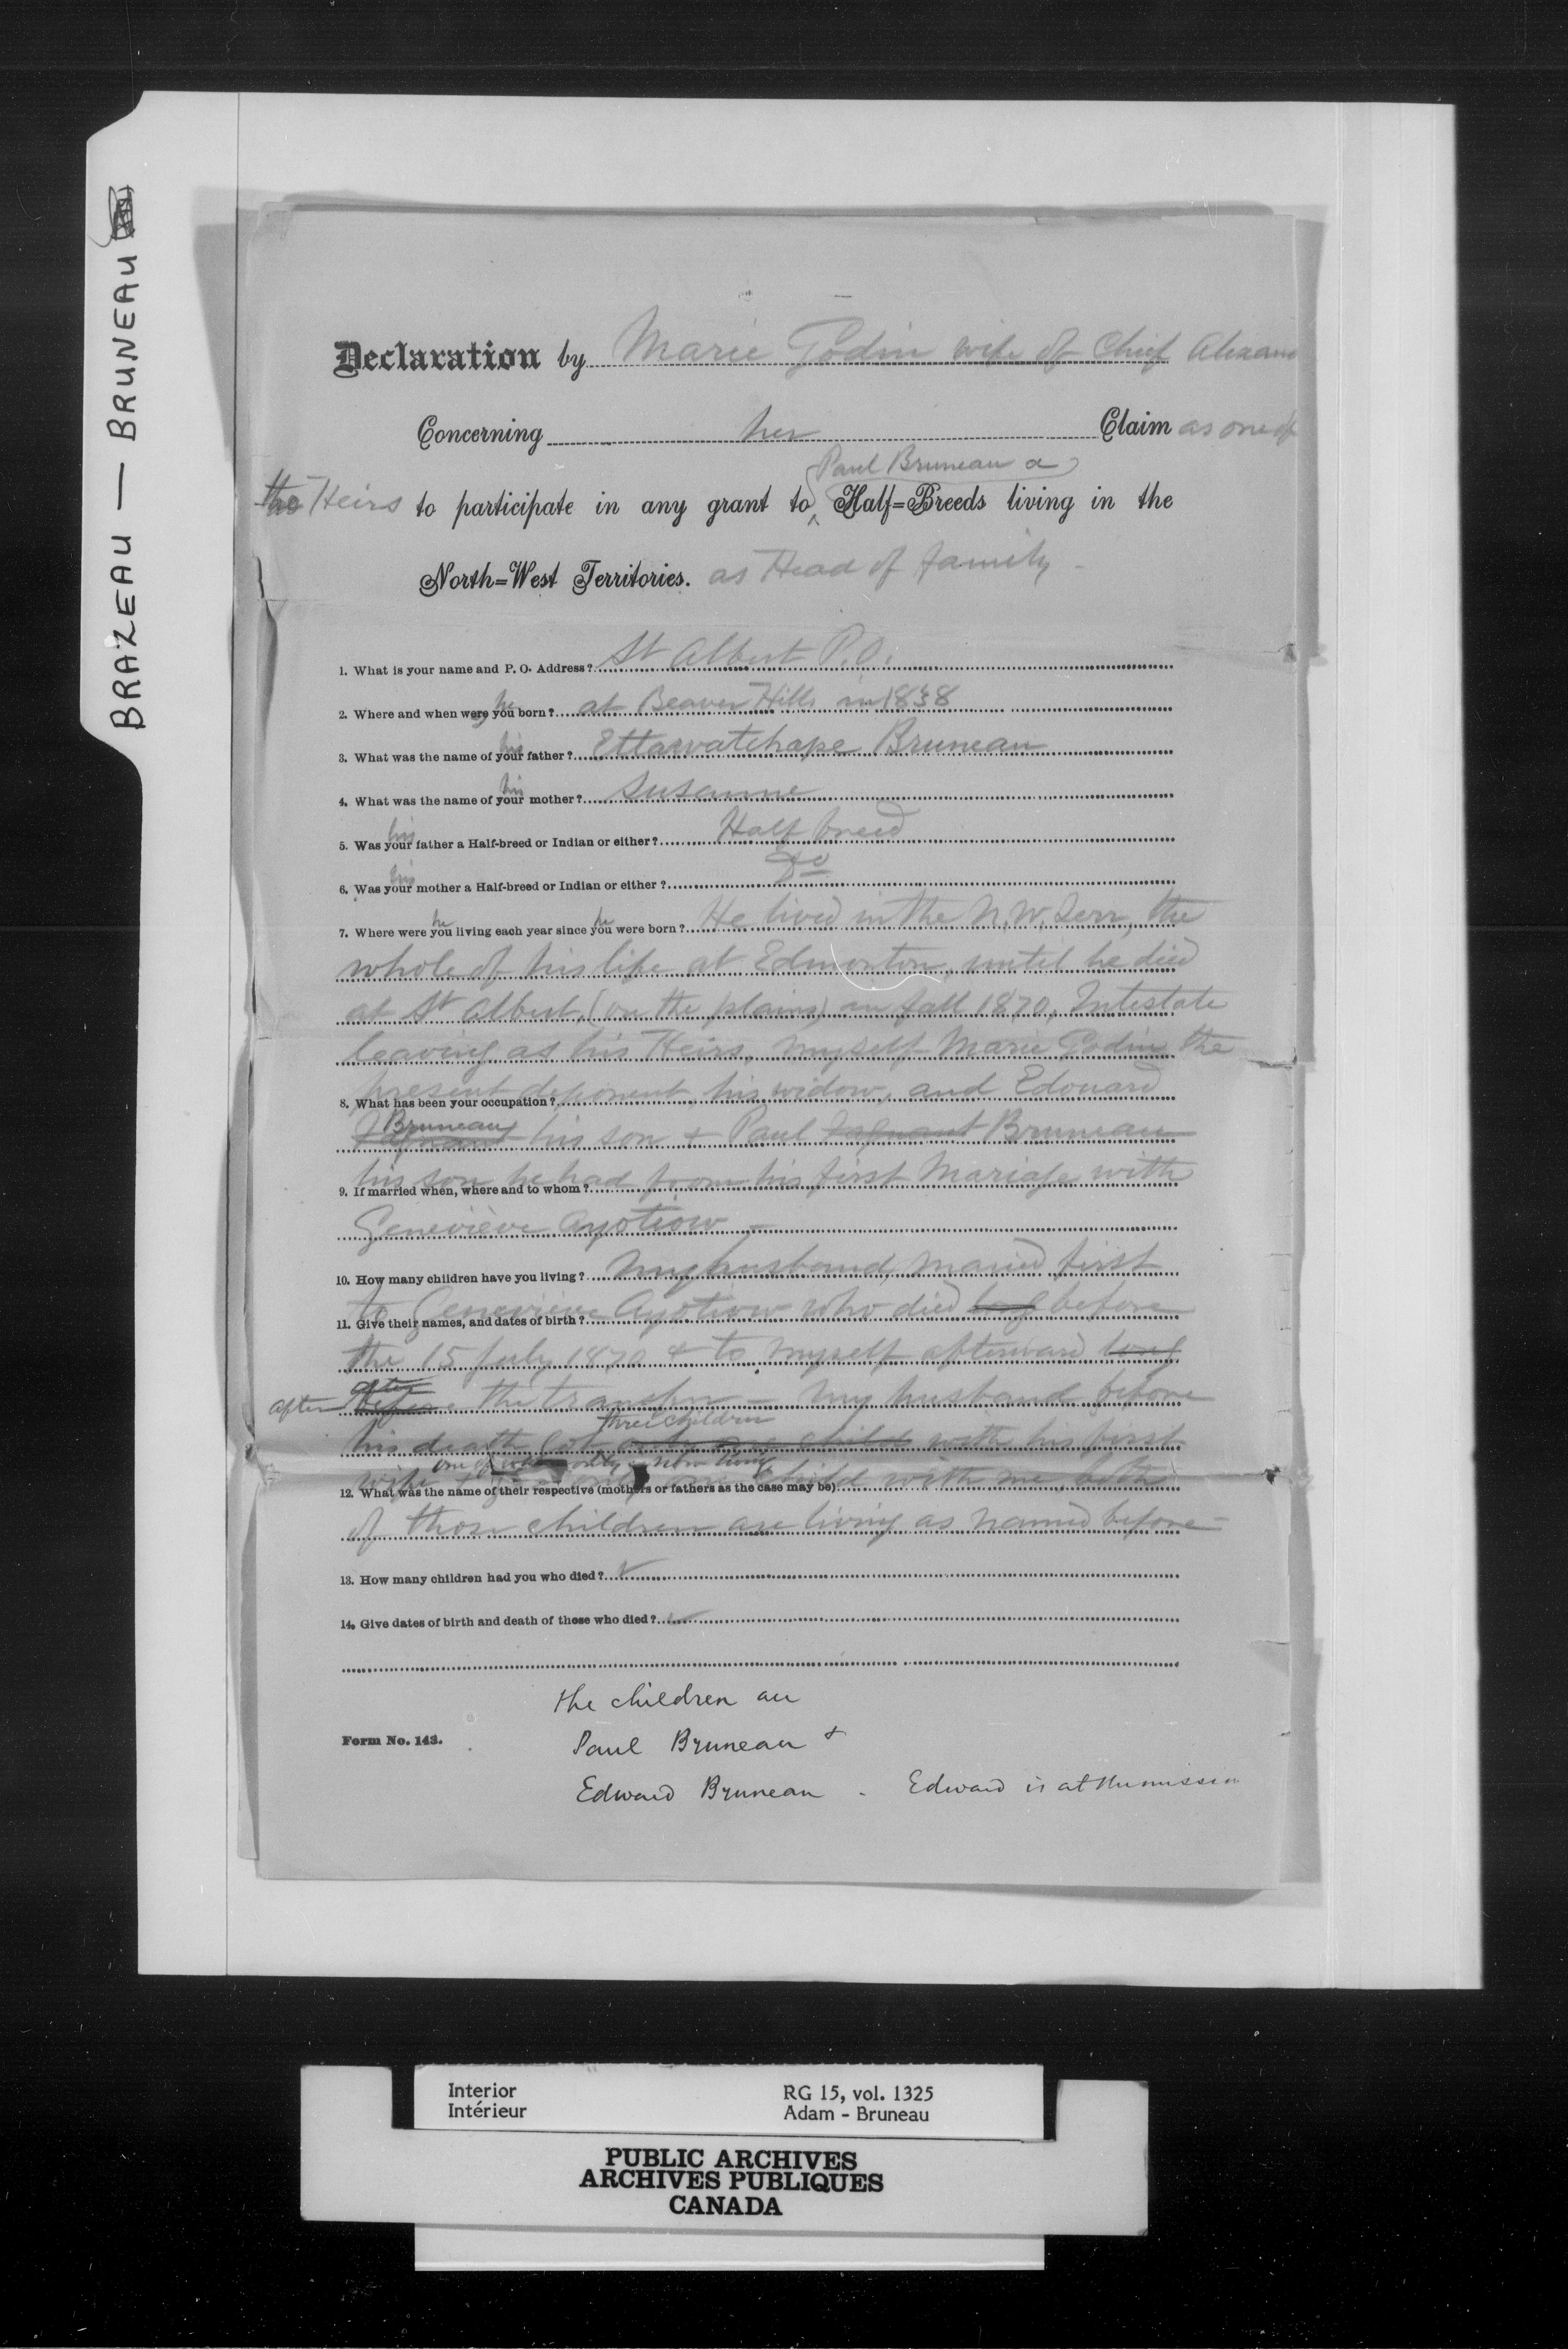 BRAZEAU — BRUNEAU
Declaration by Marie Godin wife of Chief Alexand
Concerning her Claim as one of
Paul Bruneau a
the Heirs to participate in any grant to Half=Breeds living in the
North=West Territories. as Head of family -
1. What is your name and P. O. Address? St Albert P.O.
2. Where and when were you he born? at Beaver Hills in 1838
3. What was the name of your his father? Ettawatchape Bruneau
4. What was the name of your his mother? Susanne
5. Was your his father a Half-breed or Indian or either? Half breed
6. Was your his mother a Half-breed or Indian or either? Do
7. Where were you he living each year since you he were born? He lived in the N.W. Terr, the
whole of his life at Edmonton, until he died
at St Albert, (on the plains) in fall 1870, Intestate
leaving as his Heirs, myself Marie Godin the
present deponent, his widow, and Edouard
8. What has been your occupation?
Bruneau
his son & Paul Bruneau
his son he had from his first Mariage with
9. If married when, where and to whom?
Geneviève Ayotiow -
10. How many children have you living? My husband, maried first
to Geneviève Ayotiow who died long before
11. Give their names, and dates of birth?
the 15 July 1870 & to myself afterward long
after before after the transfer - My husband before
three children
his death Got only one child with his first
one of whom only is now living
wife & only one child with me, both
12. What was the name of their respective (mothers or fathers as the case may be)
of those children are living as named before -
13. How many children had you who died?
14. Give dates of birth and death of those who died?
the children are
Form No. 143.
Paul Bruneau &
Edward Bruneau - Edward is at
Interior
Intérieur
RG 15, vol. 1325
Adam - Bruneau
PUBLIC ARCHIVES
ARCHIVES PUBLIQUES
CANADA